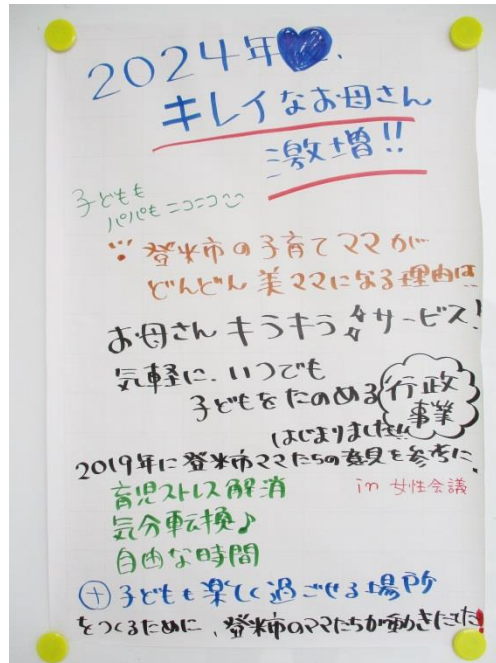 2024年
キレイなお母さん
激増!!
子どもも
パパもニコニコ
登米市の子育てママが
どんどん美ママになる理由は!!
お母さんキラキラサービス!
気軽に、いつでも
子どもをたのめる
行政
事業
はじまりました!!
2019年に登米市ママたちの意見を参考に、
育児ストレス解消
in 女性会議
気分転換♪
自由な時間
⊕子どもも楽しく過ごせる場所
をつくるために、登米市のママたちが動きだした!